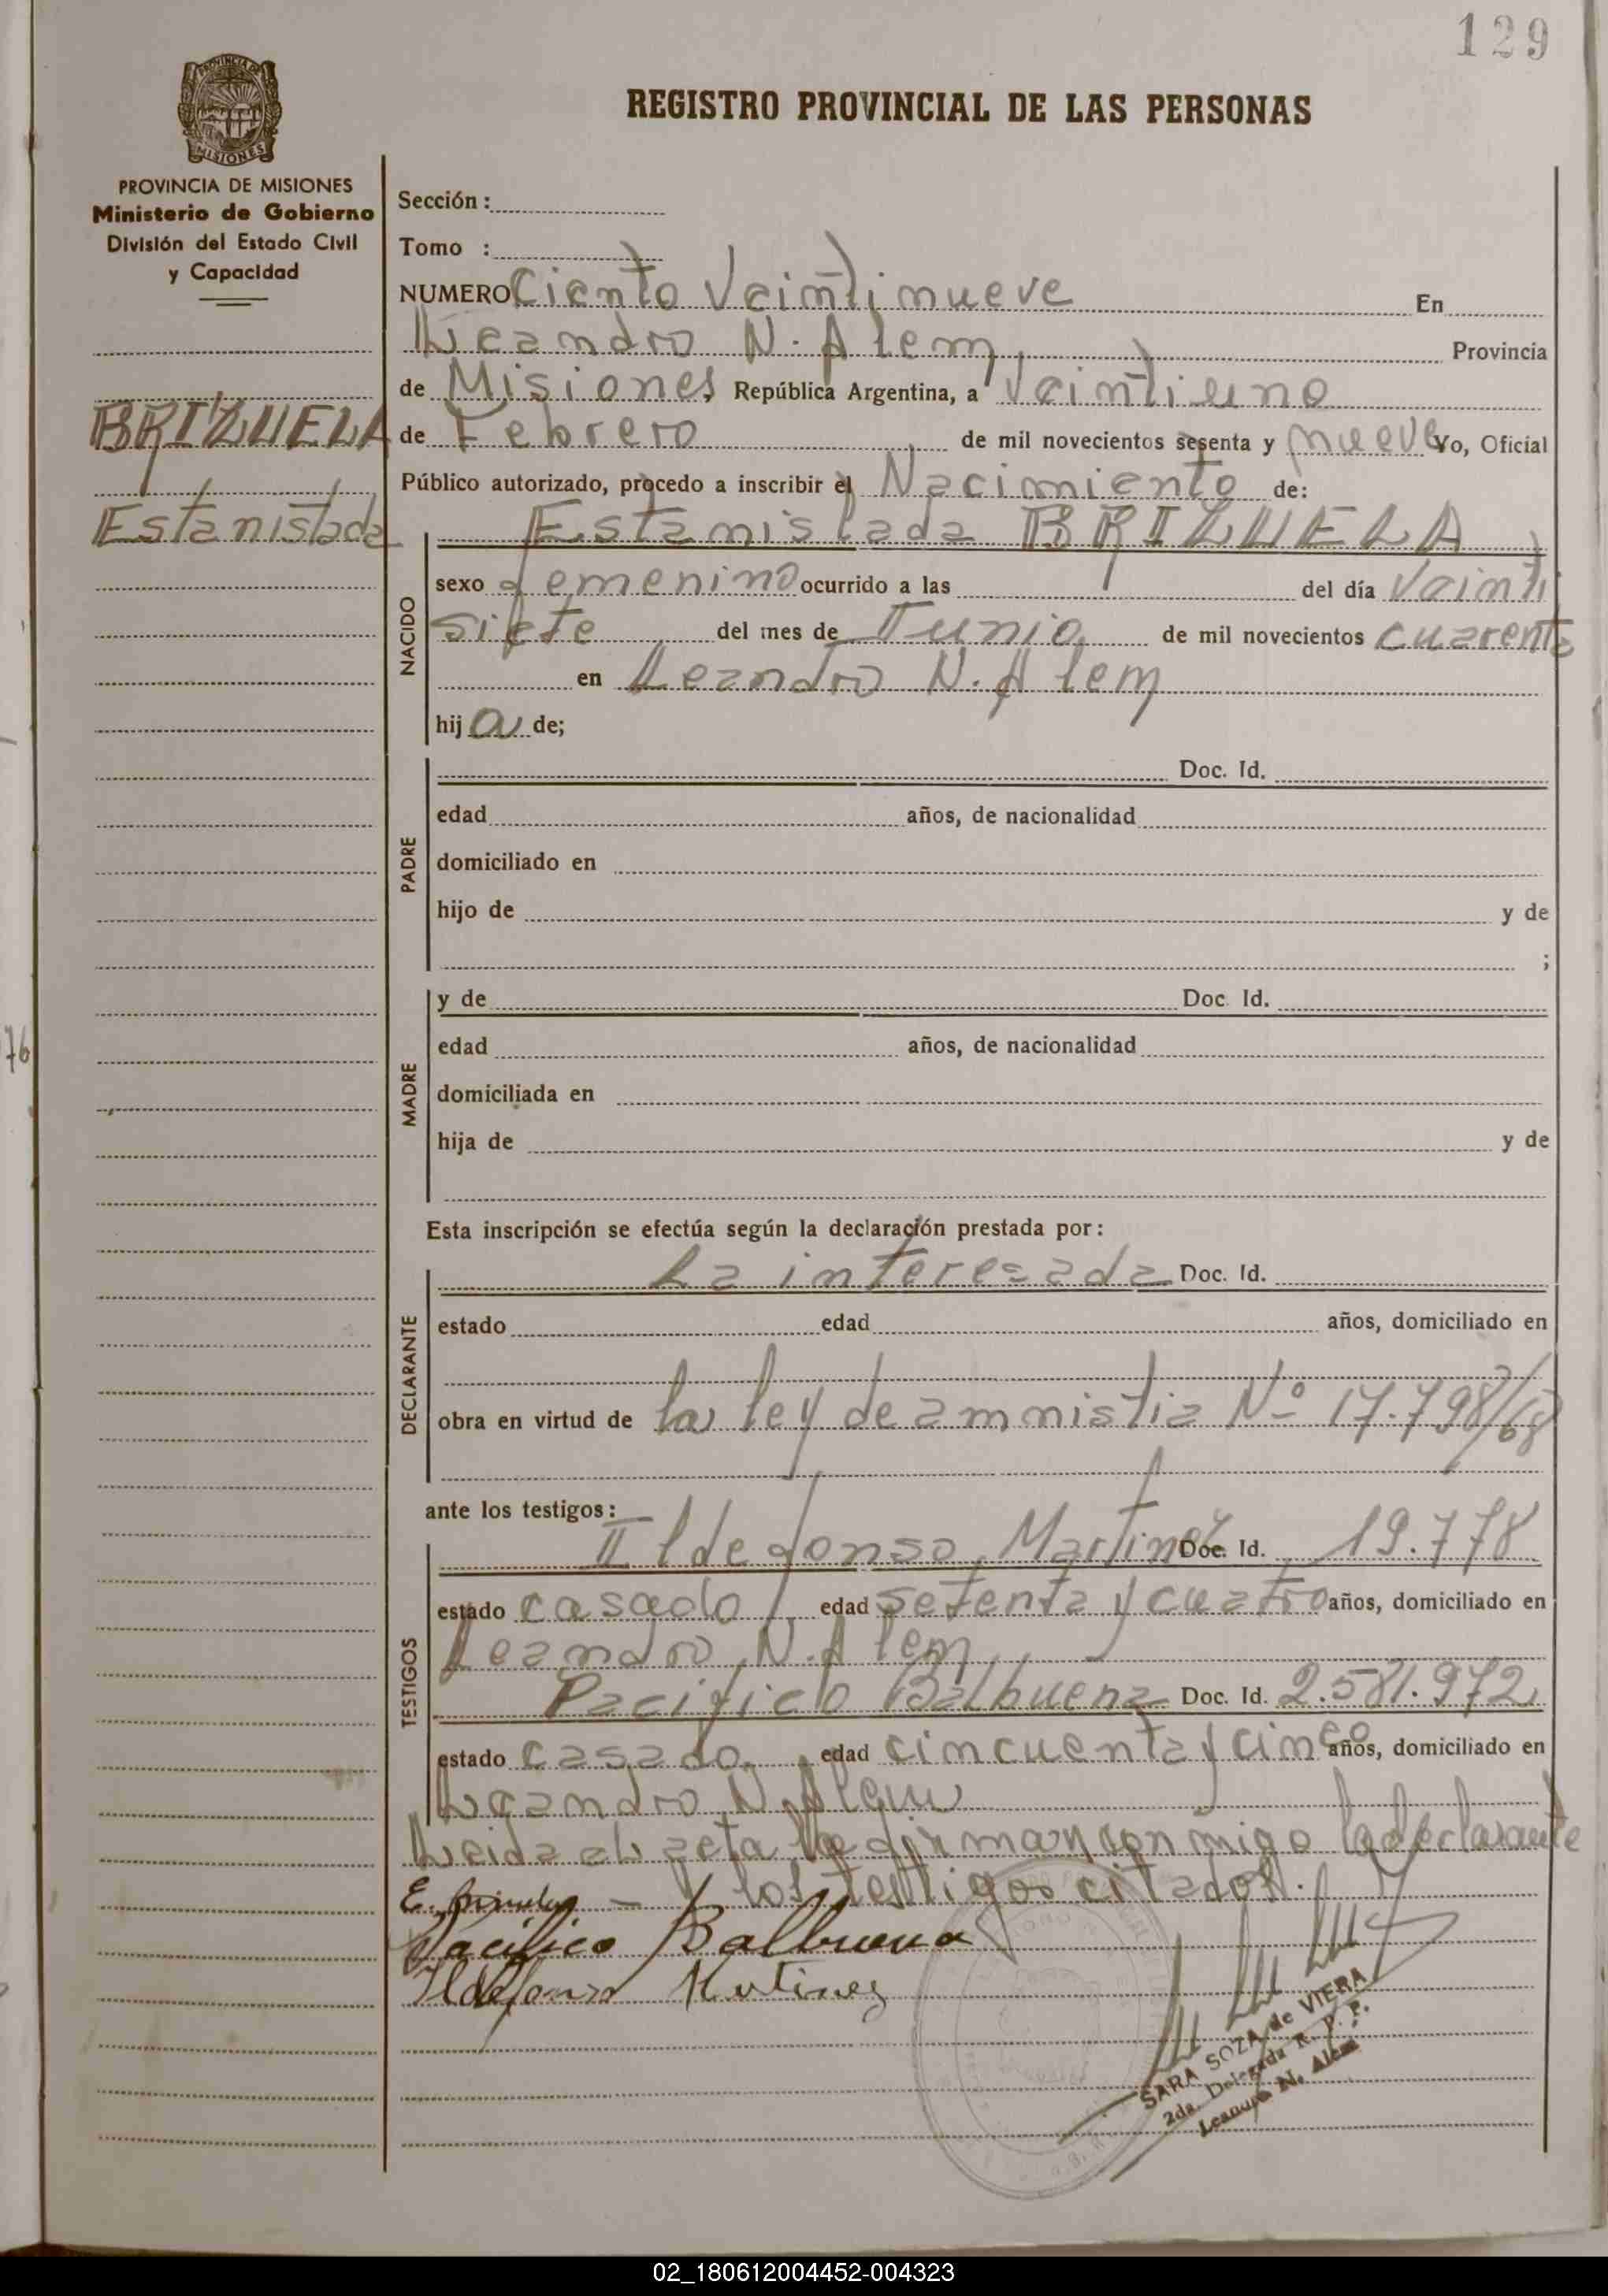 129
REGISTRO PROVINCIAL DE LAS PERSONAS
PROVINCIA DE MISIONES
MISIONES
PROVINCIA DE MISIONES
Ministerio de Gobierno
División del Estado Civil
y Capacidad
BRIZUELA
Estanislada
76
Sección :
Tomo :
NUMERO Ciento Veintinueve En
Leandro N. Alem, Provincia
de Misiones, República Argentina, a Veintiuno
de Febrero de mil novecientos sesenta y nueve Yo, Oficial
Público autorizado, procedo a inscribir el Nacimiento de:
NACIDO
Estanislada BRIZUELA
sexo femenino ocurrido a las del día Veinti
siete del mes de Junio de mil novecientos cuarenta
en Leandro N. Alem
hija de;
PADRE
Doc. Id.
edad años, de nacionalidad
domiciliado en
hijo de y de
;
MADRE
y de Doc. Id.
edad años, de nacionalidad
domiciliada en
hija de y de
Esta inscripción se efectúa según la declaración prestada por:
DECLARANTE
La interesada Doc. Id.
estado edad años, domiciliado en
obra en virtud de la ley de amnistia Nº 17.798/68
ante los testigos:
TESTIGOS
Ildefonso Martinez Doc. Id. 19.778
estado casado, edad setenta y cuatro años, domiciliado en
Leandro N. Alem
Pacifico Balbuena Doc. Id. 2.581.972,
estado casado, edad cincuenta y cinco años, domiciliado en
Leandro N. Alem
Leida el acta la firman conmigo la declarante
y los testigos citados.
Pacifico Balbuena
Ildefonso Martinez
SARA SOZA de VIERA
2da. Delegada R. P. P.
Leandro N. Alem
02_180612004452-004323